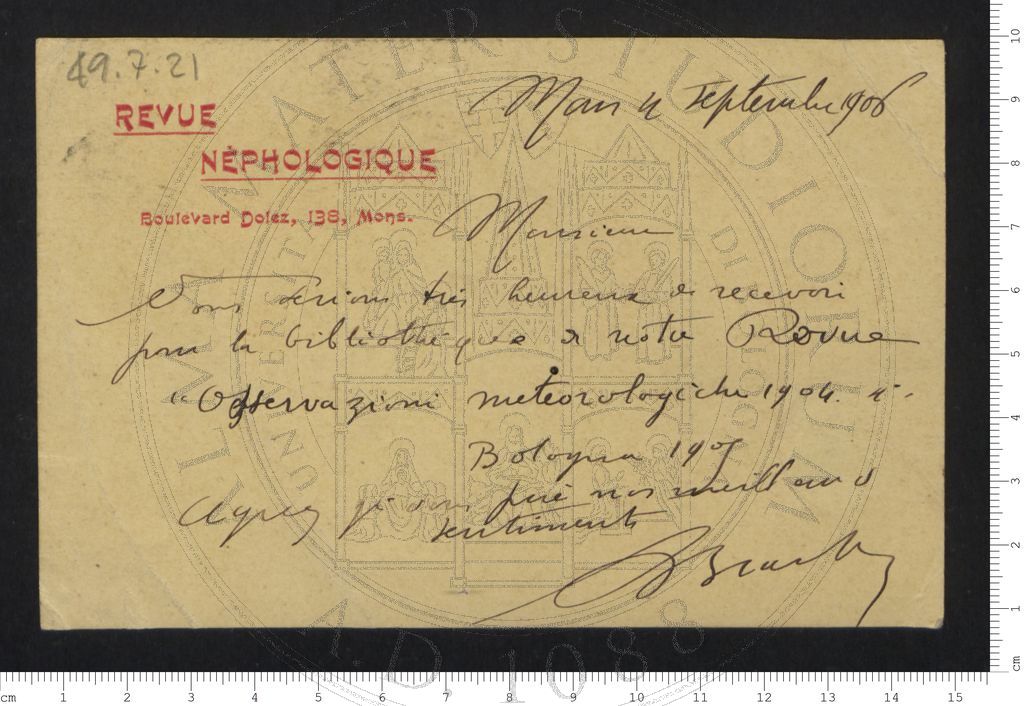 49.7.21
REVUE
NÉPHOLOGIQUE
Boulevard Dolez, 138, Mons.
Mons 4 Septembre 1906
Monsieur
Nous serions très heureux de recevoir
pour la bibliothèque de notre Revue
"Osservazioni meteorologiche 1904. "
Bologna 1905
Agréez je vous prie nos meilleurs
sentiments
ALMA MATER STUDIORUM
A.D. 1088
cm 1 2 3 4 5 6 7 8 9 10 11 12 13 14 15
10
9
8
7
6
5
4
3
2
1
cm